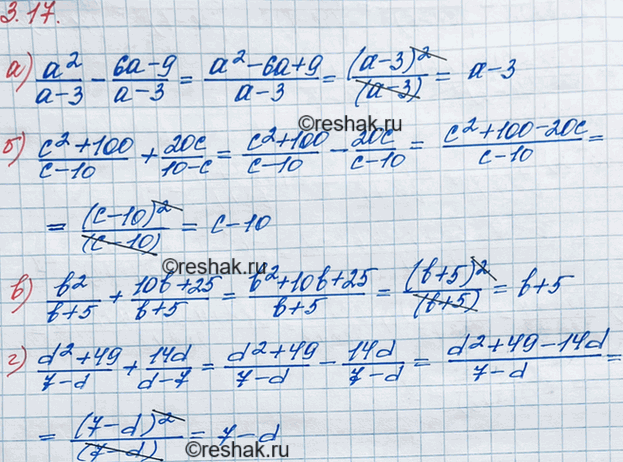 3.17.
а) a²/(a-3) - (6a-9)/(a-3) = (a²-6a+9)/(a-3) = (a-3)²/(a-3) = a-3
©reshak.ru
б) (c²+100)/(c-10) + 20c/(10-c) = (c²+100)/(c-10) - 20c/(c-10) = (c²+100-20c)/(c-10) =
= (c-10)²/(c-10) = c-10
©reshak.ru
в) b²/(b+5) + (10b+25)/(b+5) = (b²+10b+25)/(b+5) = (b+5)²/(b+5) = b+5
г) (d²+49)/(7-d) + 14d/(d-7) = (d²+49)/(7-d) - 14d/(7-d) = (d²+49-14d)/(7-d) =
= (7-d)²/(7-d) = 7-d
©reshak.ru